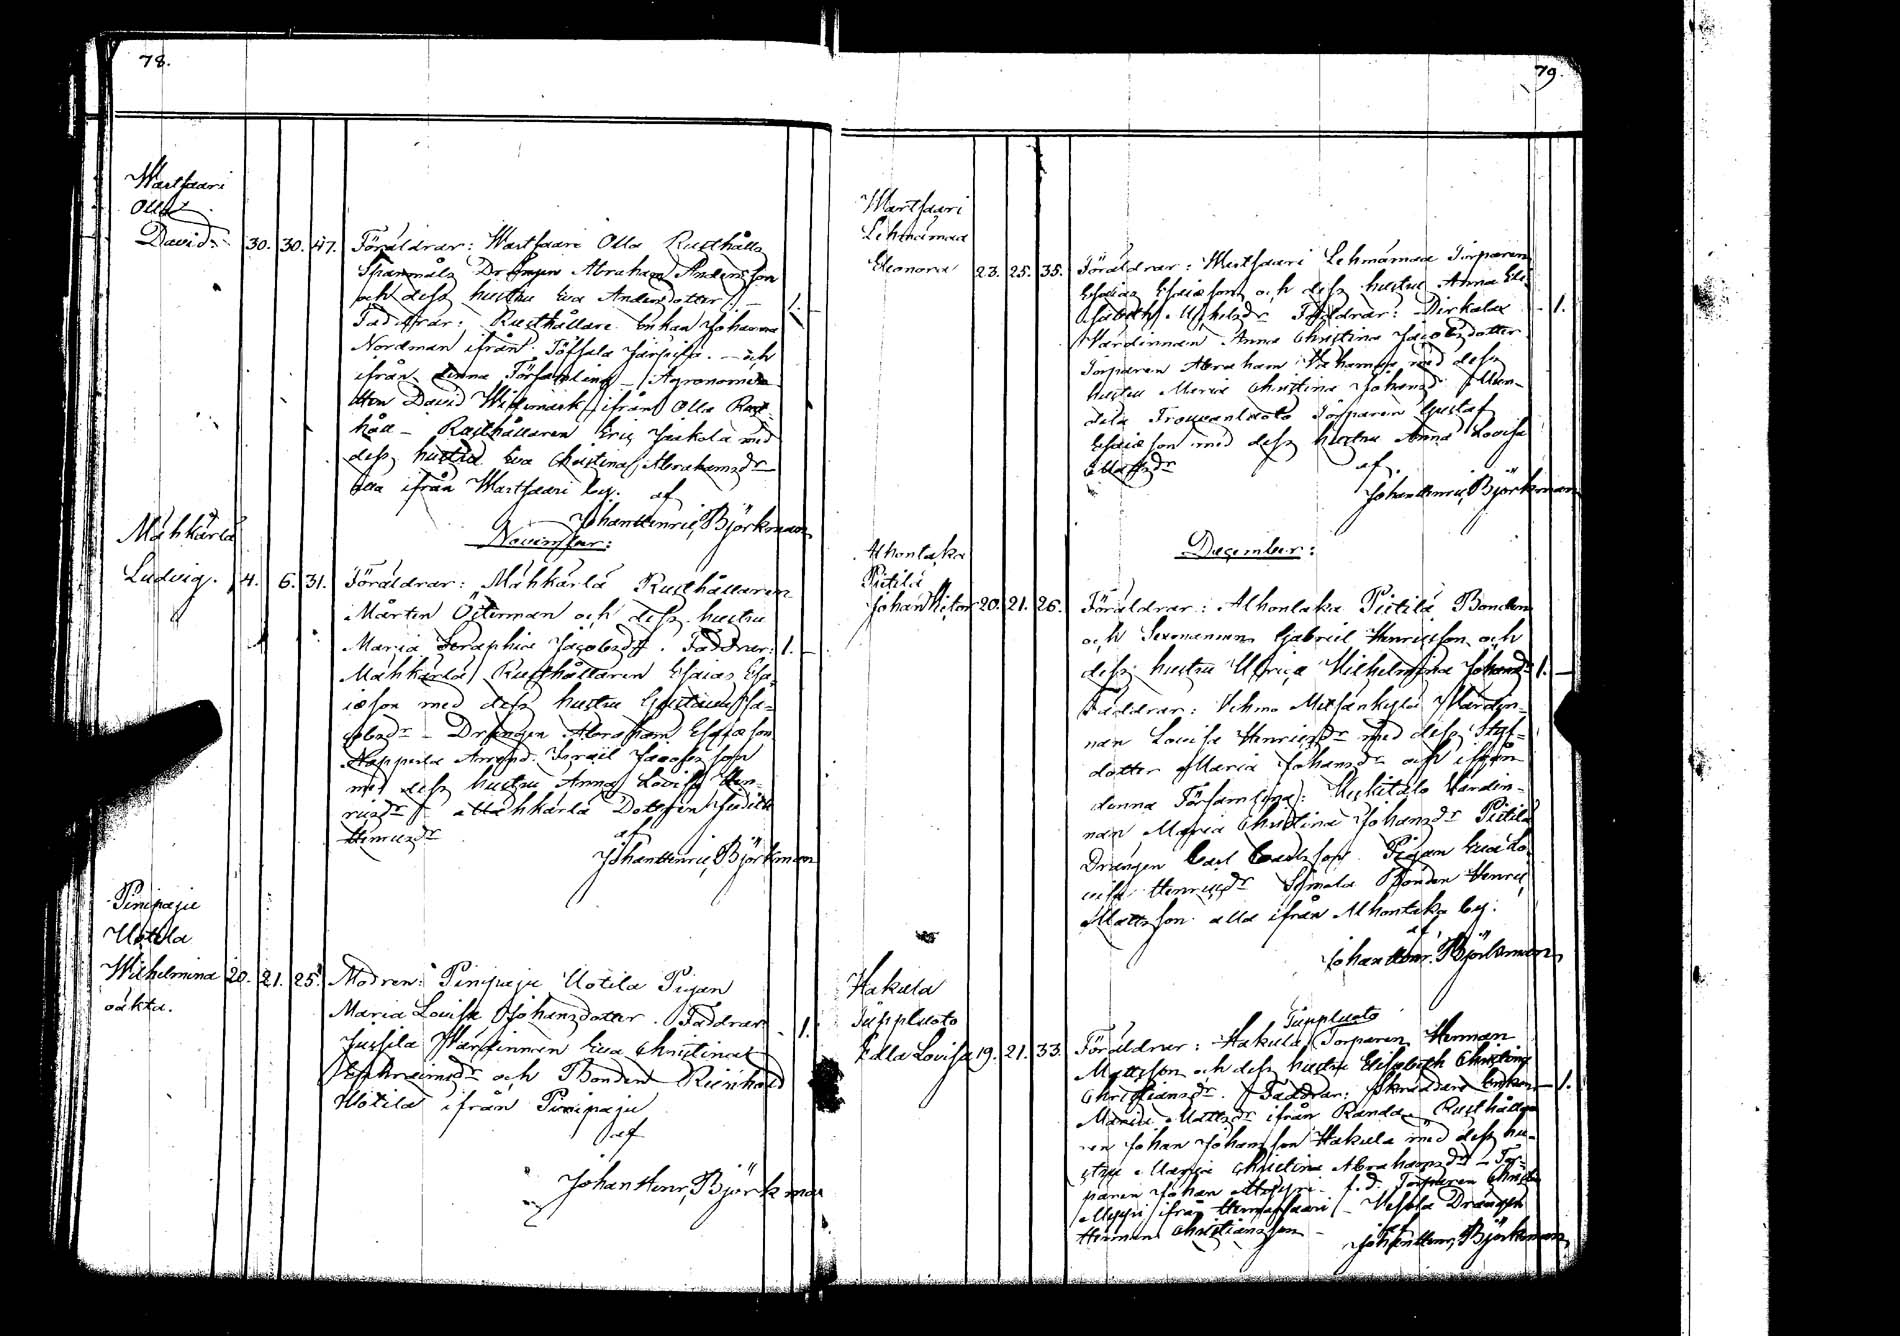 78.
Wartsaari
Olla
David. 30. 30. 47. Föräldrar: Wartsaari Olla Rusthålls
Spanmåls Drängen Abraham Andersson
och dess hustru Eva Andersdotter. – 1. –
Faddrar: Rusthållare Enkan Johanna
Nordman ifrån Töffsala – och
ifrån denna Församling –
David Widemark ifrån Olla Rust-
håll – Rusthållaren Eric Jaakola med
dess hustru Eva Christina Abrahamsdr
alla ifrån Wartsaari by. af
Johan Henric Björkman
November:
Mähkärlä
Ludvig. 4. 6. 31. Föräldrar: Mähkärlä Rusthållaren
Mårten Österman och dess hustru
Maria Seraphia Jacobsdr. Faddrar: 1. –
Mähkärlä Rusthållaren Esaias Esa-
iæson med dess hustru Gustava Ja-
cobsdr – Drängen Abraham Esaiæson
Israël Jacobsson
med dess hustru Anna Lovisa Hen-
ricsdr – Mähkärlä Dottren
Henricsdr
af
Johan Henric Björkman
Pinipaju
Uotila
Wilhelmina 20. 21. 25. Modren: Pinipaju Uotila Pigan
oäkta.
Maria Lovisa Johansdotter. Faddrar – 1.
Jussila Wärdinnan Eva Christina
Ephraimsdr och Bonden Reinhold
Uotila ifrån Pinipaju
af
Johan Henr. Björkman
79.
Wartsaari
Lehmämaa
Eleonora 23. 25. 35. Föräldrar: Wartsaari Lehmämaa Torparen
Esaias Esaiæson och dess hustru Anna Eli-
sabeth Michelsdr Faddrar: Dirkala – 1.
Wärdinnan Anna Christina Jacobsdotter
Torparen Abraham med dess
hustru Maria Christina Johansdr
Torparen Gustaf
Esaiæson med dess hustru Anna Lovisa
Mattsdr af
Johan Henric Björkman
December:
Alhontaka
Pietilä
Johan Victor 20. 21. 26. Föräldrar: Alhontaka Pietilä Bonden
och Sexmannen Gabriel Henricsson och
dess hustru Ulrica Wilhelmina Johansdr 1. –
Faddrar: Vehmo Wärdin-
nan Lovisa Henricsdr med dess Styf-
dotter Maria Johansdr och ifrån
denna Församling: Uskitalo Wärdin-
nan Maria Christina Johansdr Pietilä
Drängen Carl Carlsson Pigan Eva Lo-
visa Henricsdr Bonden Henric
Mattsson alla ifrån Alhontaka by.
af
Johan Henr. Björkman
Hakula
Tuppluoto
Edla Lovisa 19. 21. 33. Tuppluoto
Föräldrar: Hakula Torparen Herman
Mattsson och dess hustru Elisabeth Christina
Christiansdr. Faddrar: Skräddare Enkan – 1.
Maria Mattsdr ifrån Randa – Rusthålla-
ren Johan Johansson Hakula med dess hu-
stru Maria Christina Abrahamsdr – Tor-
paren Johan f. d. Torparen
ifrån – Drängen
Herman Christiansson – af
Johan Henr. Björkman